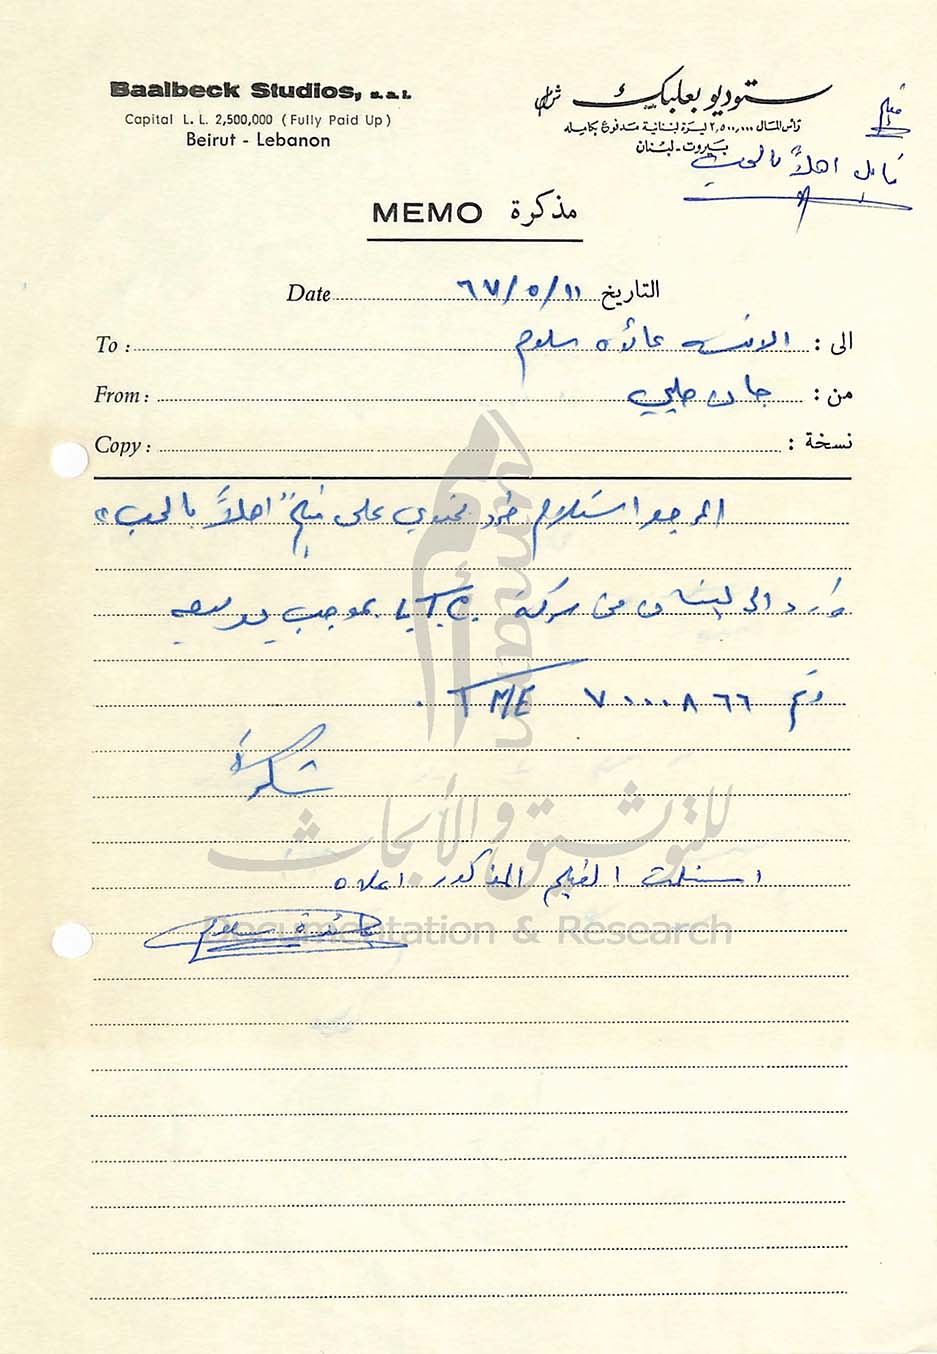 Baalbeck Studios, s.a.l.
Capital L. L. 2,500,000 ( Fully Paid Up )
Beirut - Lebanon
ستوديو بعلبك ش.م.ل
رأس المال ٢,٥٠٠,٠٠٠ ليرة لبنانية مدفوع بكامله
بيروت - لبنان
فيلم
اهلاً بالحب
MEMO مذكرة
Date ١١/٥/٦٧ التاريخ
To : الانسه عائده سلوم الى :
From : جان حلبي من :
Copy : نسخة :
المرجو استلام طرد يحتوي على فيلم "اهلاً بالحب"
وارد الى لبنان من شركة بموجب بوليصه
رقم ٧٠٠٠٨٦٦ TME .
شكراً
استلمت الفيلم المذكور اعلاه
عائدة سلوم
umam
للتوثيق والأبحاث
Documentation & Research